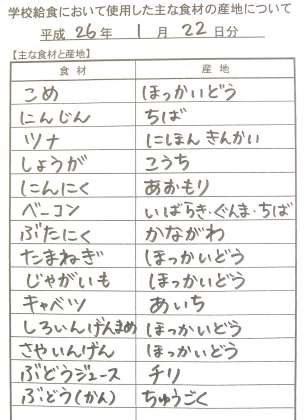 学校給食において使用した主な食材の産地について
平成 26 年 1 月 22 日分
【主な食材と産地】
食材 産地
こめ ほっかいどう
にんじん ちば
ツナ にほんきんかい
しょうが こうち
にんにく あおもり
ベーコン いばらき・ぐんま・ちば
ぶたにく かながわ
たまねぎ ほっかいどう
じゃがいも ほっかいどう
キャベツ あいち
しろいんげんまめ ほっかいどう
さやいんげん ほっかいどう
ぶどうジュース チリ
ぶどう(かん) ちゅうごく